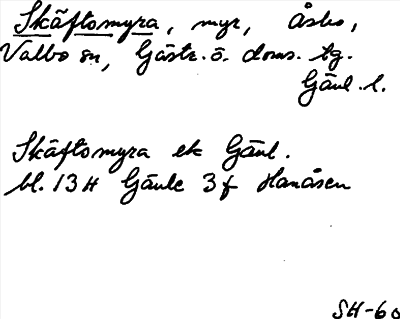 Skäftomyra, myr, Åsbo,
Valbo sn, Gästr. ö. doms. tg.
Gävl. l.
Skäftomyra ek Gävl.
bl. 13 H Gävle 3 f Hanåsen
SH-60